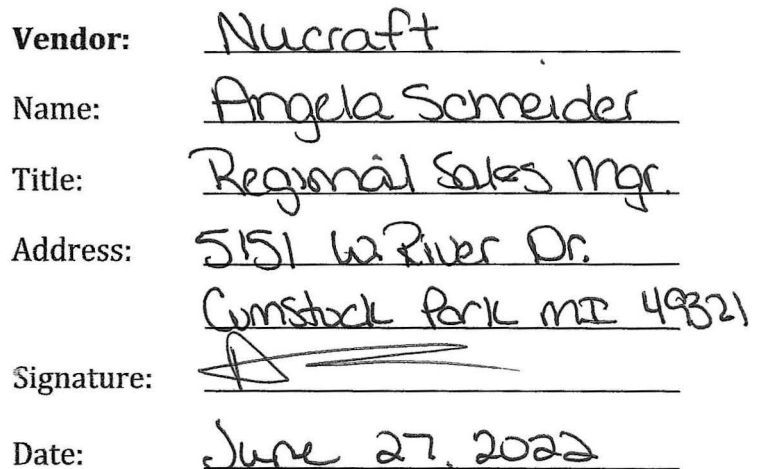 Vendor: Nucraft
Name: Angela Schneider
Title: Regional Sales Mgr.
Address: 5151 W. River Dr.
Comstock Park MI 49321
Signature:
Date: June 27, 2022